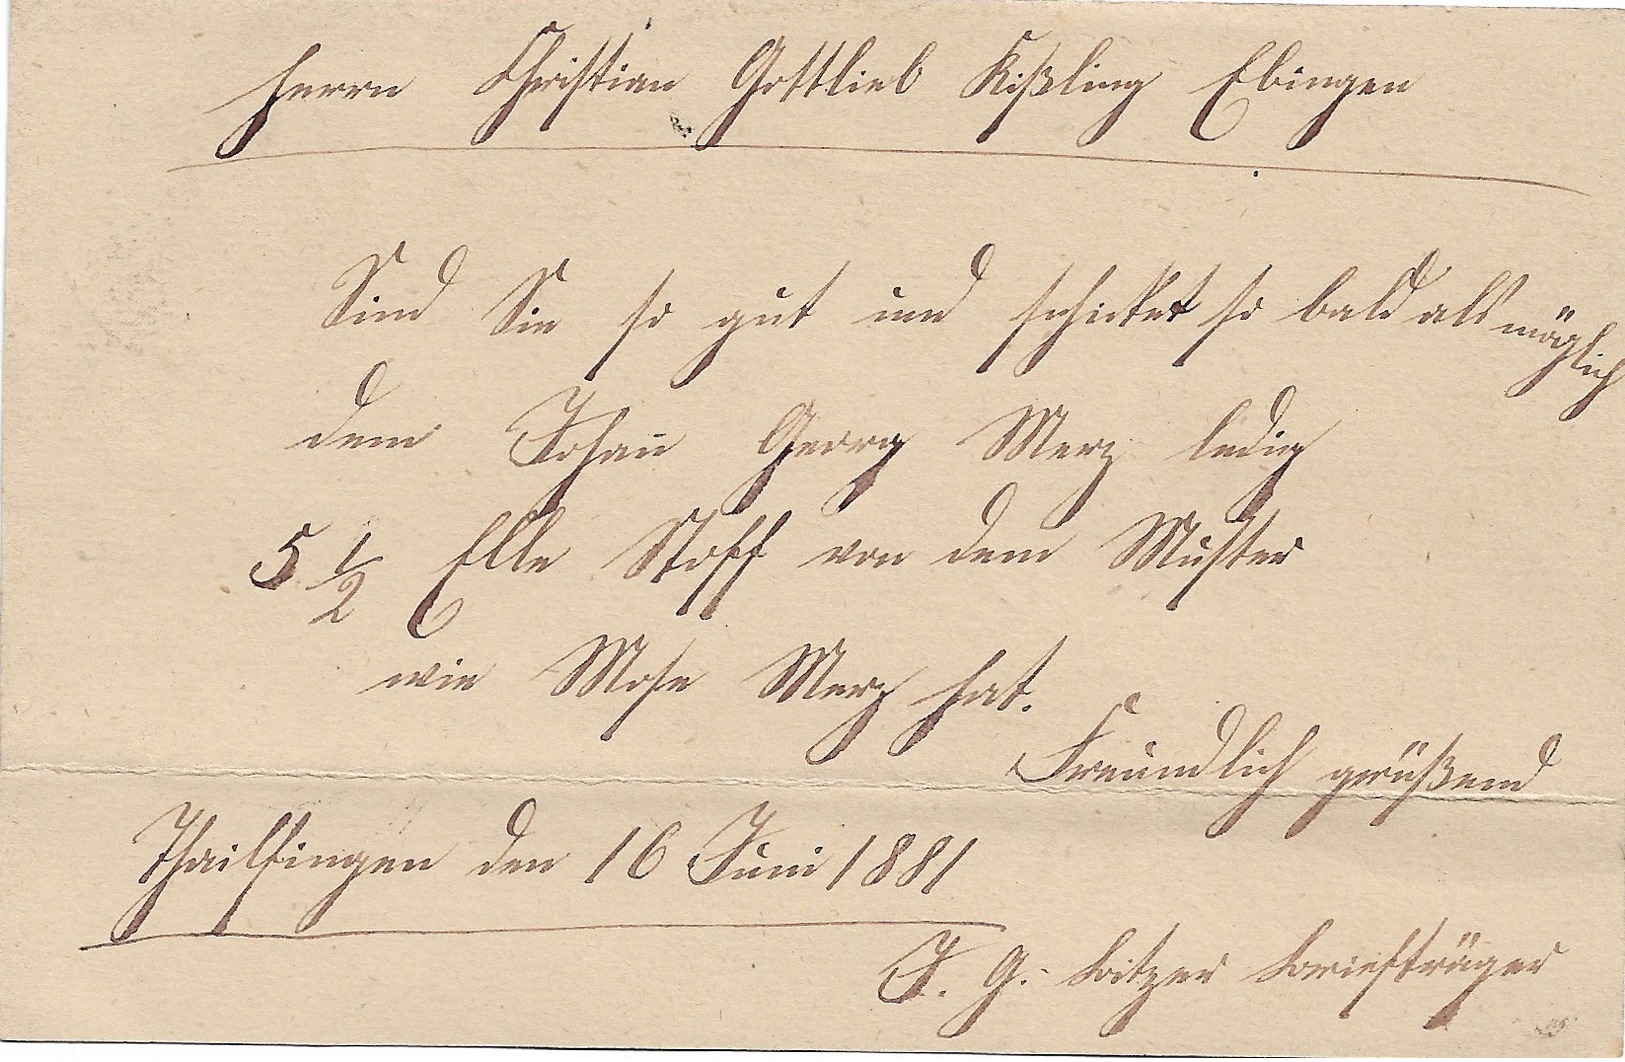 Herrn Christian Gottlieb Kißling Ebingen
Sind Sie so gut und schicket so bald als möglich
dem Johan̄ Georg Merz ledig
5 1/2 Elle Stoff von dem Muster
wie Mose Merz hat.
Freundlich grüßend
Thailfingen den 16 Juni 1881
J. G. Bitzer Briefträger